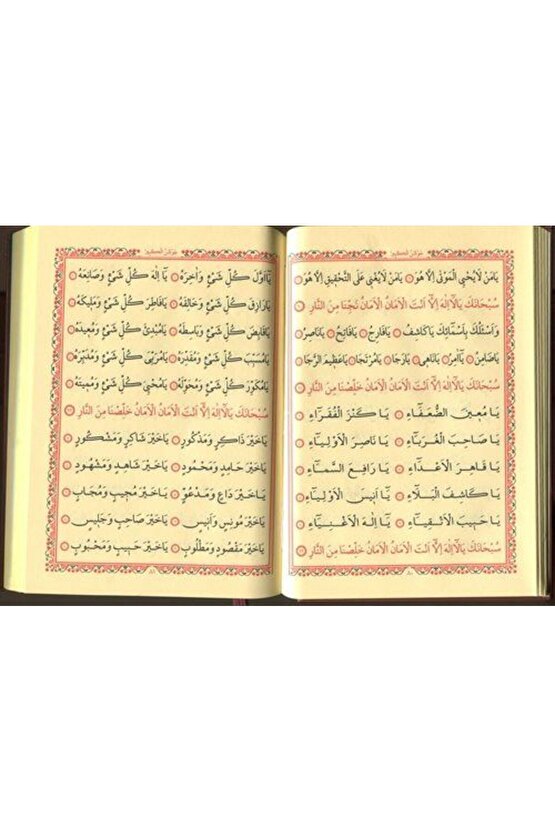 جوشن الكبير
يَا مَنْ لَا يُحْيِى الْمَوْتٰى اِلَّا هُوَ ۞ يَا مَنْ لَا يَعْنِى عَلَى التَّحْقِيقِ اِلَّا هُوَ
سُبْحَانَكَ يَالَآاِلٰهَ اِلَّا اَنْتَ الْاَمَانُ الْاَمَانُ نَجِّنَا مِنَ النَّارِ
وَاَسْئَلُكَ بِاَسْمَآئِكَ يَاكَاشِفُ ۞ يَافَارِجُ ۞ يَافَاتِحُ ۞ يَانَاصِرُ
يَاضَامِنُ ۞ يَآاٰمِرُ ۞ يَانَاهِى ۞ يَارَجَا ۞ يَامُرْتَجَا ۞ يَاعَظِيمَ الرَّجَا
سُبْحَانَكَ يَالَآاِلٰهَ اِلَّا اَنْتَ الْاَمَانُ الْاَمَانُ خَلِّصْنَا مِنَ النَّارِ
يَا مُعِينَ الضُّعَفَآءِ ۞ يَا كَنْزَ الْفُقَرَآءِ
يَا صَاحِبَ الْغُرَبَآءِ ۞ يَا نَاصِرَ الْاَوْلِيَآءِ
يَا قَاهِرَ الْاَعْدَآءِ ۞ يَا رَافِعَ السَّمَآءِ
يَا كَاشِفَ الْبَلَآءِ ۞ يَآ اَنِيسَ الْاَوْلِيَآءِ
يَا حَبِيبَ الْاَتْقِيَآءِ ۞ يَآ اِلٰهَ الْاَغْنِيَآءِ
سُبْحَانَكَ يَالَآاِلٰهَ اِلَّا اَنْتَ الْاَمَانُ الْاَمَانُ خَلِّصْنَا مِنَ النَّارِ
جوشن الكبير
يَآاَوَّلَ كُلِّ شَىْءٍ وَاٰخِرَهُ ۞ يَآ اِلٰهَ كُلِّ شَىْءٍ وَصَانِعَهُ
يَارَازِقَ كُلِّ شَىْءٍ وَخَالِقَهُ ۞ يَافَاطِرَ كُلِّ شَىْءٍ وَمَلِيكَهُ
يَاقَابِضَ كُلِّ شَىْءٍ وَبَاسِطَهُ ۞ يَامُبْدِئَ كُلِّ شَىْءٍ وَمُعِيدَهُ
يَامُسَبِّبَ كُلِّ شَىْءٍ وَمُقَدِّرَهُ ۞ يَامُرَبِّىَ كُلِّ شَىْءٍ وَمُدَبِّرَهُ
يَامُكَوِّرَ كُلِّ شَىْءٍ وَمُحَوِّلَهُ ۞ يَامُحْيِىَ كُلِّ شَىْءٍ وَمُمِيتَهُ
سُبْحَانَكَ يَالَآاِلٰهَ اِلَّا اَنْتَ الْاَمَانُ الْاَمَانُ خَلِّصْنَا مِنَ النَّارِ
يَاخَيْرَ ذَاكِرٍ وَمَذْكُورٍ ۞ يَاخَيْرَ شَاكِرٍ وَمَشْكُورٍ
يَاخَيْرَ حَامِدٍ وَمَحْمُودٍ ۞ يَاخَيْرَ شَاهِدٍ وَمَشْهُودٍ
يَاخَيْرَ دَاعٍ وَمَدْعُوٍّ ۞ يَاخَيْرَ مُجِيبٍ وَمُجَابٍ
يَاخَيْرَ مُونِسٍ وَاَنِيسٍ ۞ يَاخَيْرَ صَاحِبٍ وَجَلِيسٍ
يَاخَيْرَ مَقْصُودٍ وَمَطْلُوبٍ ۞ يَاخَيْرَ حَبِيبٍ وَمَحْبُوبٍ